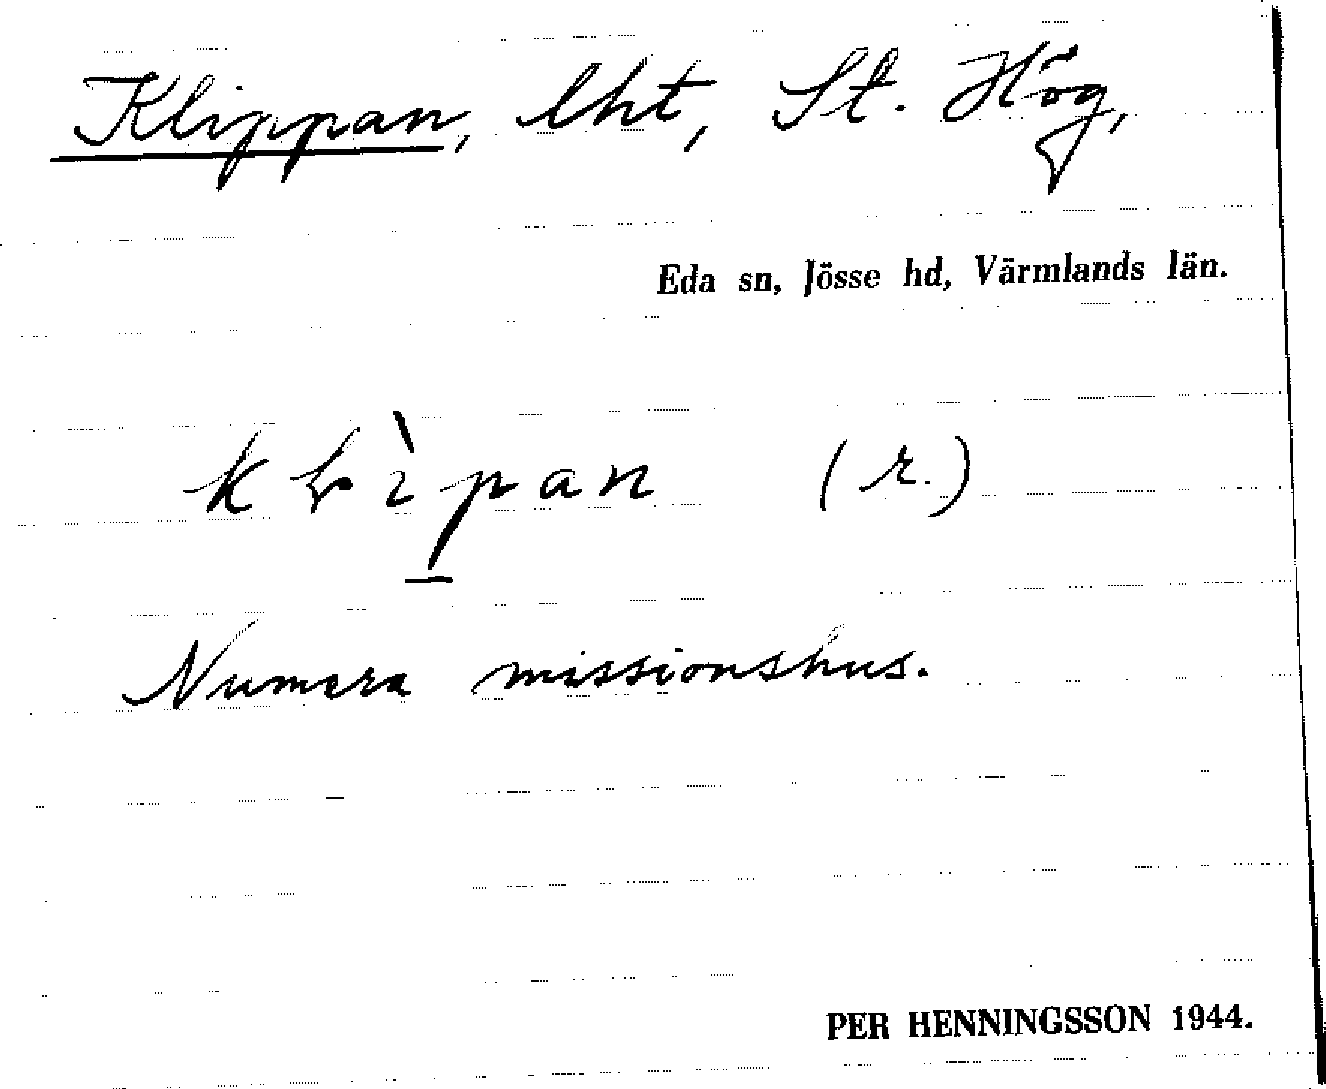 Klippan, lht, St. Hög,
Eda sn, Jösse hd, Värmlands län.
kl̀ɩpan (r.)
Numera missionshus.
PER HENNINGSSON 1944.